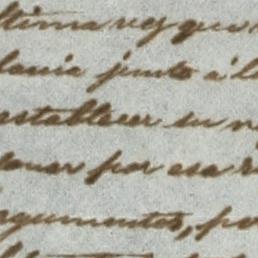 ltima vez que
lavia junto á l
establecer su
por esa r
rgumentos, po